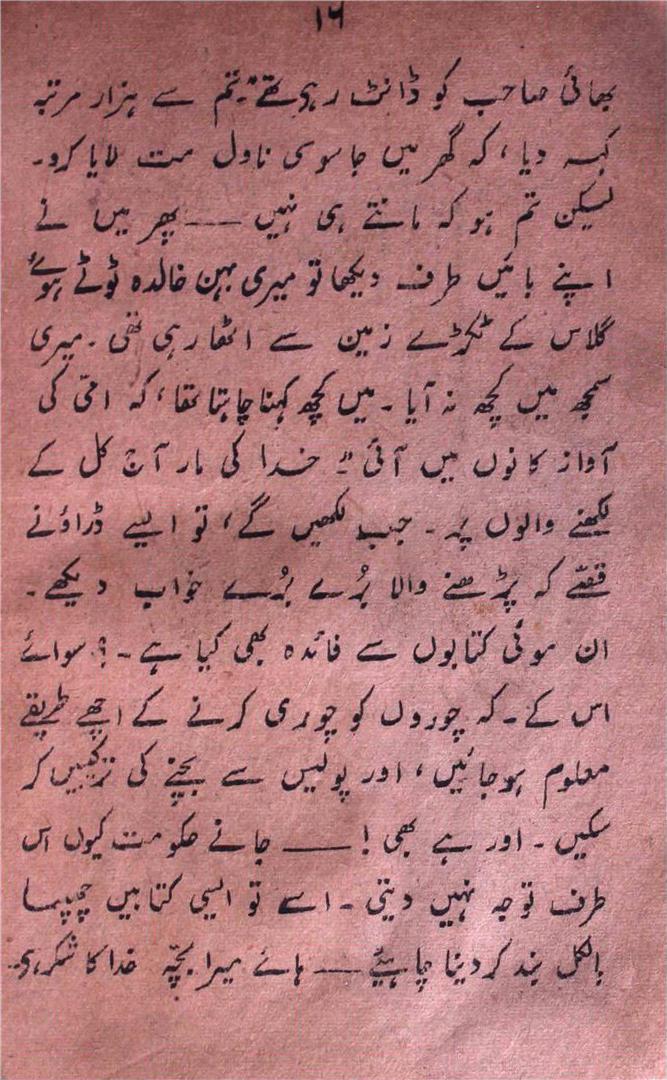 ۱۶
بھائی صاحب کو ڈانٹ رہی تھے "۔ تم سے ہزار مرتبہ
کہہ دیا، کہ گھر میں جاسوسی ناول مت لایا کرو۔
لیکن تم ہو کہ مانتے ہی نہیں —— پھر میں نے
اپنے بائیں طرف دیکھا تو میری بہن خالدہ ٹوٹے ہوئے
گلاس کے ٹکڑے زمین سے اٹھا رہی تھی ۔ میری
سمجھ میں کچھ نہ آیا ۔ میں کچھ کہنا چاہتا تھا، کہ امّی کی
آواز کانوں میں آئی " خدا کی مار آج کل کے
لکھنے والوں پر ۔ جب لکھیں گے، تو ایسے ڈراؤنے
قصّے کہ پڑھنے والا بُرے بُرے خواب دیکھے ۔
ان موئی کتابوں سے فائدہ بھی کیا ہے ۔ ؟ سوائے
اس کے ۔ کہ چوروں کو چوری کرنے کے اچھے طریقے
معلوم ہو جائیں، اور پولیس سے بچنے کی ترکیبیں کر
سکیں ۔ اور ہے بھی ! —— جانے حکومت کیوں اس
طرف توجہ نہیں دیتی ۔ اسے تو ایسی کتابیں چھپنا
بالکل بند کر دینا چاہیئے —— ہائے میرا بچّہ خدا کا شکر ہی۔